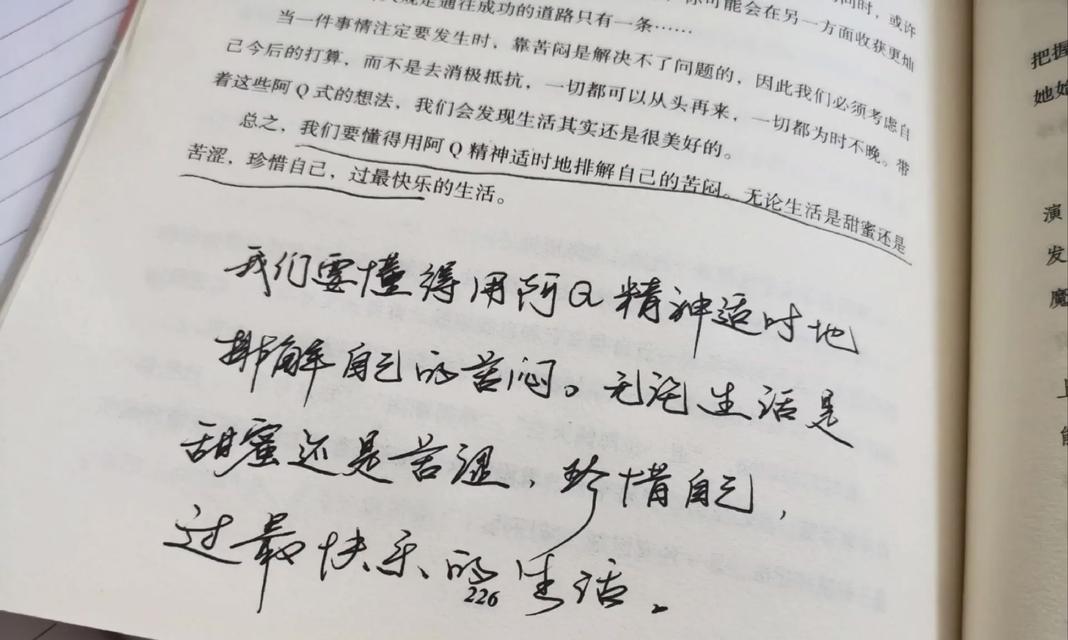 规定通往成功的道路只有一条……
你可能会在另一方面收获更灿
同时，或许
当一件事情注定要发生时，靠苦闷是解决不了问题的，因此我们必须考虑自
己今后的打算，而不是去消极抵抗，一切都可以从头再来，一切都为时不晚。带
着这些阿Q式的想法，我们会发现生活其实还是很美好的。
总之，我们要懂得用阿Q精神适时地排解自己的苦闷。无论生活是甜蜜还是
苦涩，珍惜自己，过最快乐的生活。
我们要懂得用阿Q精神适时地
排解自己的苦闷。无论生活是
甜蜜还是苦涩，珍惜自己，
过最快乐的生活。
226
把握
她
演
发
魔
上
能